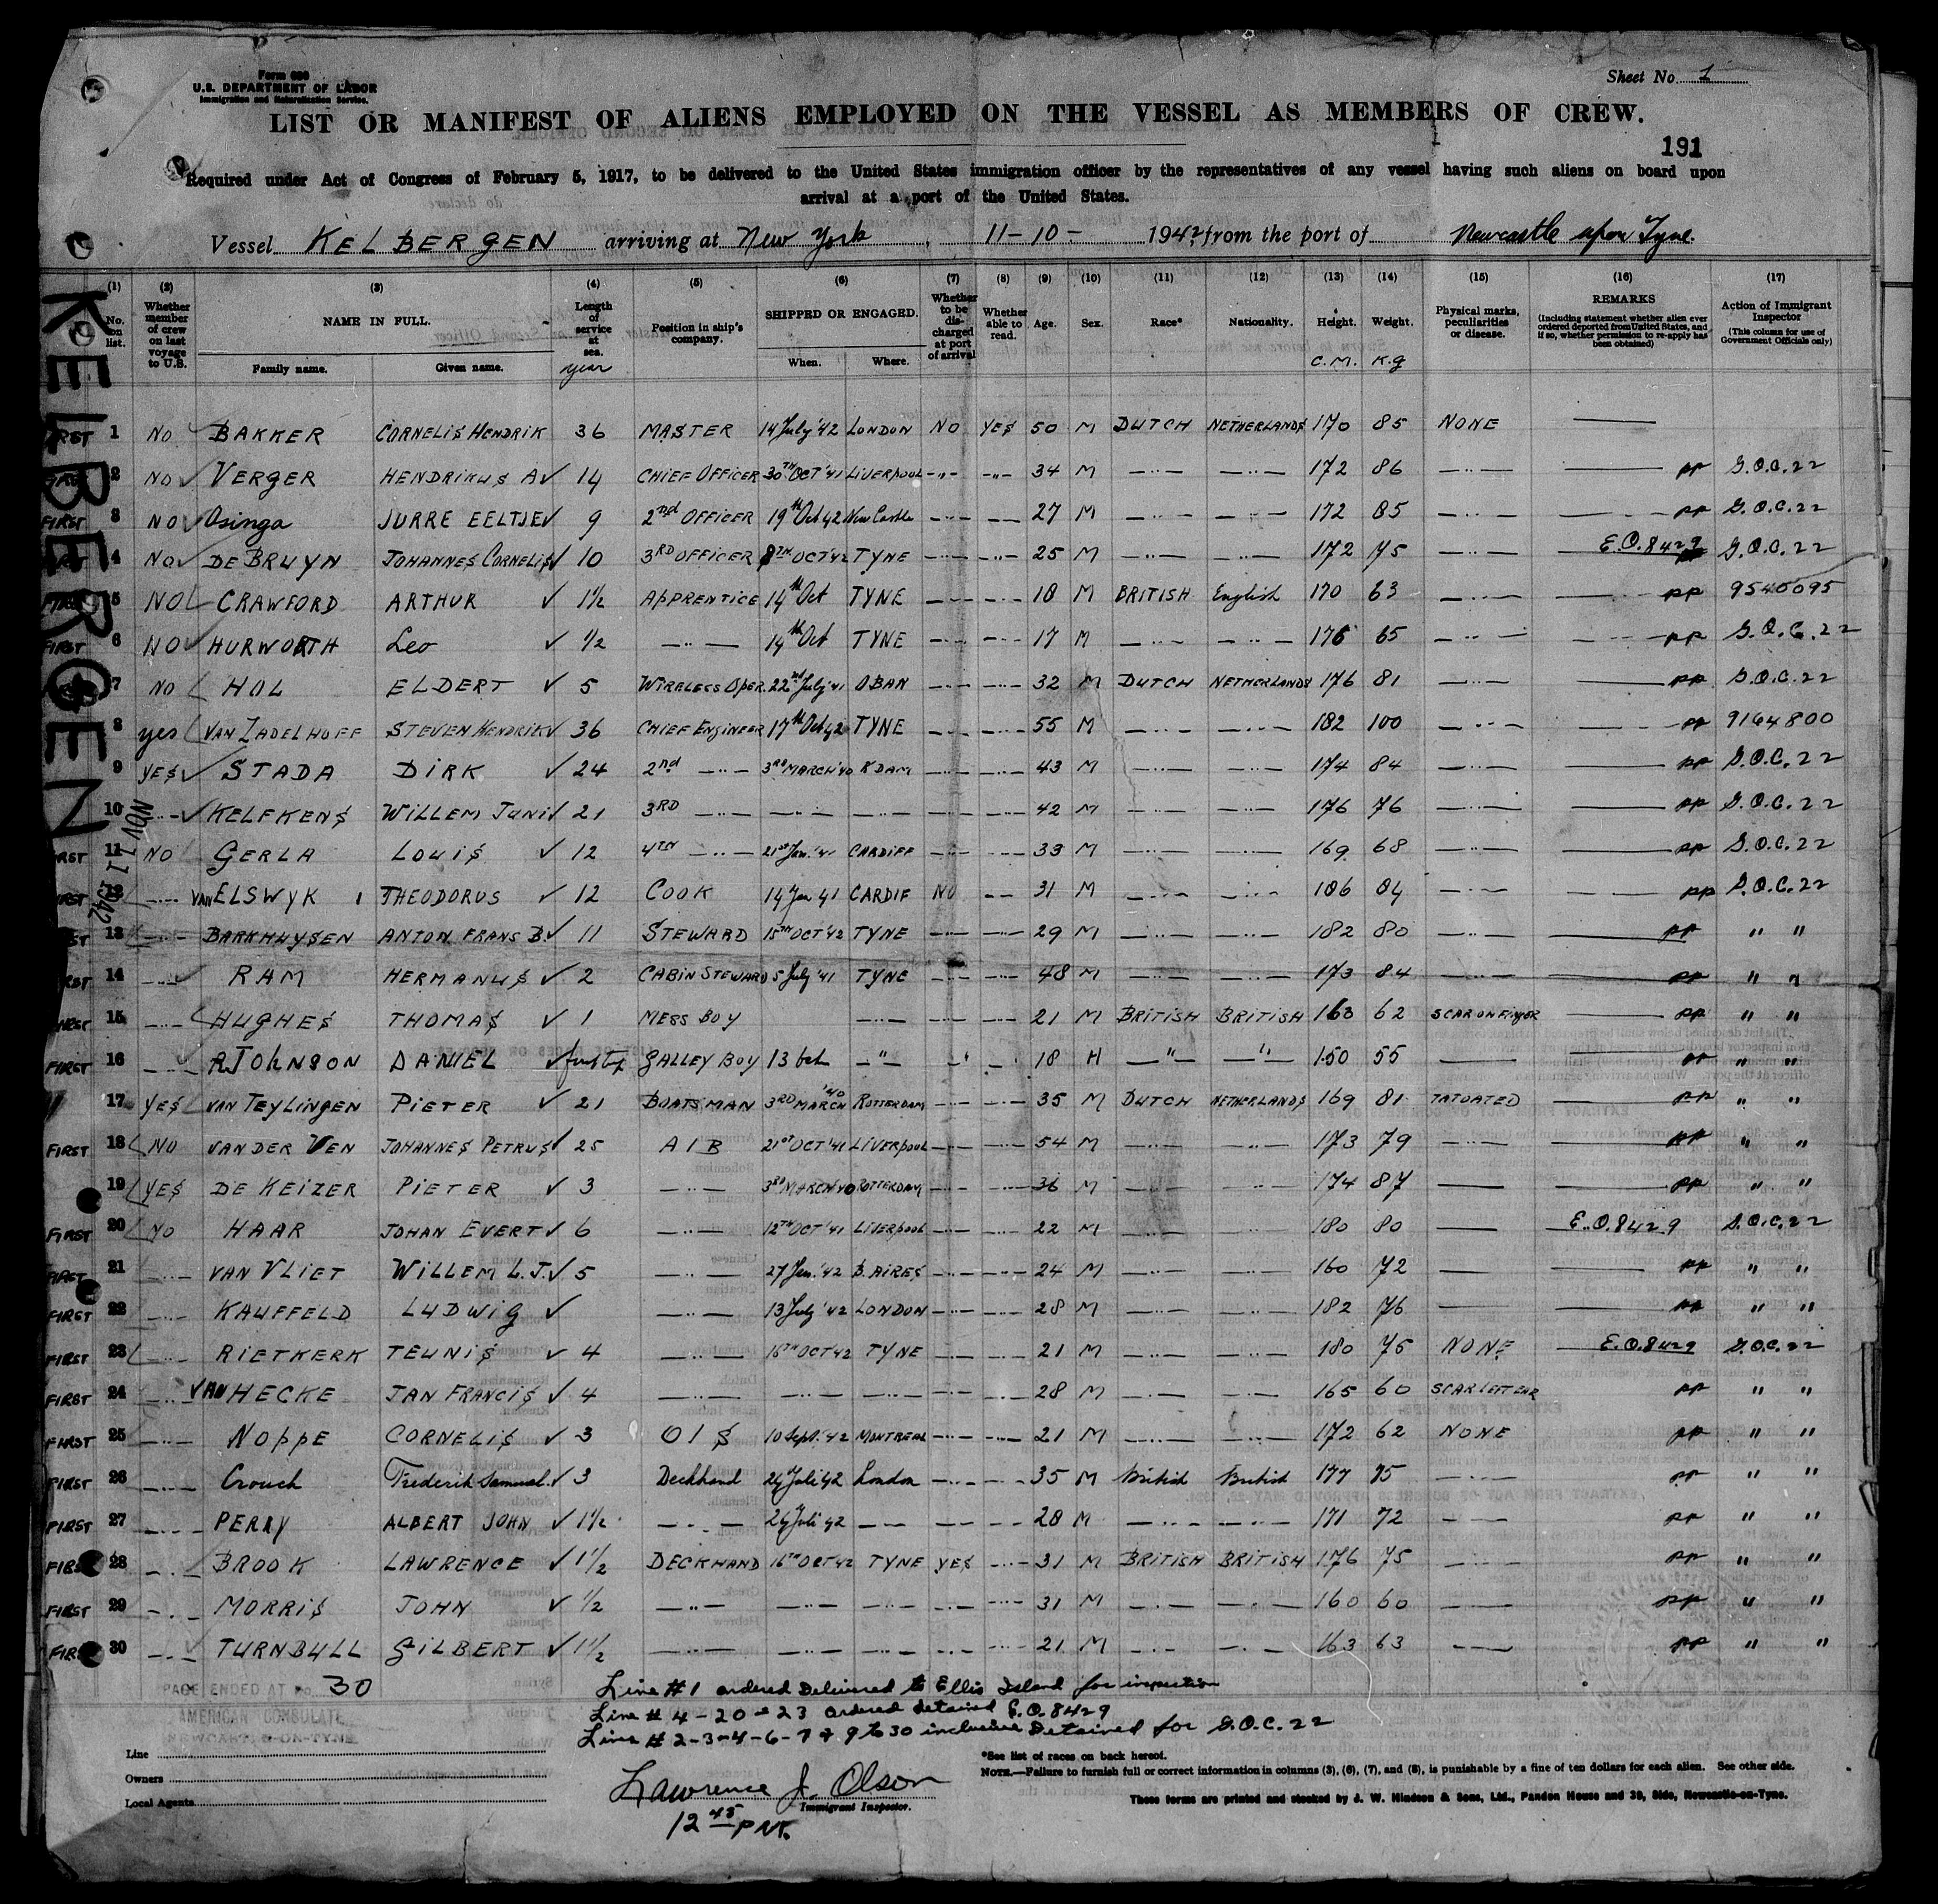 Form 680
U.S. DEPARTMENT OF LABOR
Immigration and Naturalization Service.
Sheet No. 1
LIST OR MANIFEST OF ALIENS EMPLOYED ON THE VESSEL AS MEMBERS OF CREW.
191
Required under Act of Congress of February 5, 1917, to be delivered to the United States immigration officer by the representatives of any vessel having such aliens on board upon
arrival at a port of the United States.
Vessel KELBERGEN arriving at New York, 11-10- 1942 from the port of Newcastle upon Tyne.
(1) (2) (3) (4) (5) (6) (7) (8) (9) (10) (11) (12) (13) (14) (15) (16) (17)
No. on list. Whether member of crew on last voyage to U.S. NAME IN FULL. Family name. Given name. Length of service at sea. year Position in ship's company. SHIPPED OR ENGAGED. When. Where. Whether to be discharged at port of arrival Whether able to read. Age. Sex. Race* Nationality. Height. C.M. Weight. K.g Physical marks, peculiarities or disease. REMARKS (Including statement whether alien ever ordered deported from United States, and if so, whether permission to re-apply has been obtained) Action of Immigrant Inspector (This column for use of Government Officials only)
KELBERGEN
NOV 17 1942
FIRST 1 NO BAKKER CORNELIS HENDRIK 36 MASTER 14 July '42 LONDON NO YES 50 M DUTCH NETHERLANDS 170 85 NONE —
2 NO VERGER HENDRIKUS A 14 CHIEF OFFICER 30TH OCT '41 LIVERPOOL —"— —"— 34 M —"— —"— 172 86 —"— — pp S.O.C. 22
FIRST 3 NO Osinga JURRE EELTJE 9 2nd OFFICER 19th Oct 42 New Castle —"— —"— 27 M —"— —"— 172 85 —"— — pp S.O.C. 22
4 NO DE BRUYN JOHANNES CORNELIS 10 3RD OFFICER 8TH OCT '42 TYNE —"— —"— 25 M —"— —"— 172 75 —"— E.O. 8429 S.O.C. 22
FIRST 5 NO CRAWFORD ARTHUR 1½ APPRENTICE 14th Oct TYNE —"— —"— 18 M BRITISH English 170 63 —"— — pp 9540095
FIRST 6 NO HURWORTH Leo ½ —"— 14th Oct TYNE —"— —"— 17 M —"— —"— 176 65 —"— — pp S.O.C. 22
7 NO HOL ELDERT 5 WIRELESS Oper. 22nd July '41 OBAN —"— —"— 32 M DUTCH NETHERLANDS 176 81 —"— — pp S.O.C. 22
8 yes VAN ZADELHOFF STEVEN HENDRIK 36 CHIEF ENGINEER 17th Oct 42 TYNE —"— —"— 55 M —"— —"— 182 100 —"— — pp 9164800
9 YES STADA DIRK 24 2nd —"— 3RD MARCH '40 R'DAM —"— —"— 43 M —"— —"— 174 84 —"— — pp S.O.C. 22
10 —"— KELFKENS WILLEM 21 3RD —"— —"— —"— —"— —"— 42 M —"— —"— 176 76 —"— — pp S.O.C. 22
FIRST 11 NO GERLA LOUIS 12 4TH —"— 21st Jan. '41 CARDIFF —"— —"— 33 M —"— —"— 169 68 —"— — pp S.O.C. 22
FIRST 12 —"— VAN ELSWYK THEODORUS 12 COOK 14 Jan 41 CARDIF NO —"— 31 M —"— —"— 186 84 —"— — pp S.O.C. 22
FIRST 13 —"— BARKHUYSEN ANTON FRANS B. 11 STEWARD 15TH OCT '42 TYNE —"— —"— 29 M —"— —"— 182 80 —"— — pp " "
FIRST 14 —"— RAM HERMANUS 2 CABIN STEWARD 5 July '41 TYNE —"— —"— 48 M —"— —"— 173 84 —"— — pp " "
FIRST 15 —"— HUGHES THOMAS 1 MESS BOY —"— —"— —"— 21 M BRITISH BRITISH 163 62 SCAR ON FINGER — pp " "
FIRST 16 —"— JOHNSON DANIEL first trip GALLEY BOY 13 —"— 18 M —"— —"— 150 55 — — pp " "
17 YES VAN TEYLINGEN PIETER 21 BOATSMAN 3RD MARCH '40 ROTTERDAM —"— —"— 35 M DUTCH NETHERLANDS 169 81 TATOATED — pp " "
FIRST 18 NO VAN DER VEN JOHANNES PETRUS 25 A I B 21ST OCT '41 LIVERPOOL —"— —"— 54 M —"— —"— 173 79 —"— — pp " "
19 YES DE KEIZER PIETER 3 —"— 3RD MARCH '40 ROTTERDAM —"— —"— 36 M —"— —"— 174 87 — — pp " "
FIRST 20 NO HAAR JOHAN EVERT 6 —"— 12TH OCT '41 LIVERPOOL —"— —"— 22 M —"— —"— 180 80 — E.O. 8429 S.O.C. 22
FIRST 21 —"— VAN VLIET WILLEM L.J. 5 —"— 27 Jan. '42 B. AIRES —"— —"— 24 M —"— —"— 160 72 — — pp " "
FIRST 22 —"— KAUFFELD LUDWIG —"— 13 July '42 LONDON —"— —"— 28 M —"— —"— 182 76 — — pp " "
FIRST 23 —"— RIETKERK TEUNIS 4 —"— 16TH OCT 42 TYNE —"— —"— 21 M —"— —"— 180 75 NONE E.O. 8429 S.O.C. 22
FIRST 24 —"— VAN HECKE JAN FRANCIS 4 —"— —"— —"— —"— —"— 28 M —"— —"— 165 60 SCAR LEFT EAR pp " "
FIRST 25 —"— NOPPE CORNELIS 3 O I S 10 Sept. '42 MONTREAL —"— —"— 21 M —"— —"— 172 62 NONE pp " "
FIRST 26 —"— Crouch Frederik Samuel. 3 Deckhand 24 Juli 42 London —"— —"— 35 M British British 177 75 —"— pp " "
FIRST 27 —"— PERRY ALBERT JOHN 1½ —"— 24 Juli 42 —"— —"— —"— 28 M —"— —"— 171 72 —"— pp " "
FIRST 28 —"— BROOK LAWRENCE 1½ DECKHAND 16TH OCT 42 TYNE YES —"— 31 M BRITISH BRITISH 176 75 —"— pp " "
FIRST 29 —"— MORRIS JOHN ½ —"— —"— —"— —"— —"— 31 M —"— —"— 160 60 —"— pp " "
FIRST 30 —"— TURNBULL GILBERT 1½ —"— —"— —"— —"— —"— 21 M —"— —"— 163 63 —"— pp " "
PAGE ENDED AT No. 30
AMERICAN CONSULATE
NEWCASTLE-ON-TYNE
Line #1 ordered Delivered to Ellis Island for inspection
Line # 4 - 20 - 23 ordered detained E.O. 8429
Line # 2-3-4-6-7 & 9 to 30 inclusive Detained for S.O.C. 22
Line
Owners
Local Agents
Lawrence J. Olson
Immigrant Inspector.
12 45 P.M.
*See list of races on back hereof.
NOTE.—Failure to furnish full or correct information in columns (3), (6), (7), and (8), is punishable by a fine of ten dollars for each alien. See other side.
These forms are printed and stocked by J. W. Hindson & Sons, Ltd., Pandon House and 39, Side, Newcastle-on-Tyne.